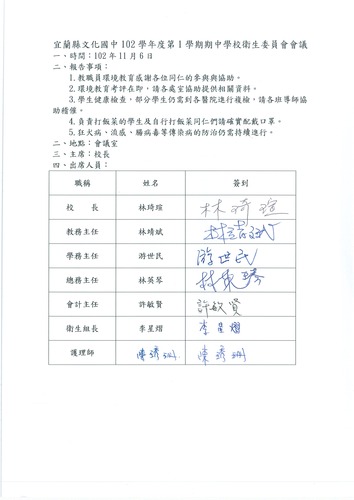 宜蘭縣文化國中 102 學年度第 1 學期期中學校衛生委員會會議
一、時間：102 年 11 月 6 日
二、報告事項：
1.教職員環境教育感謝各位同仁的參與與協助。
2.環境教育考評在即，請各處室協助提供相關資料。
3.學生健康檢查，部分學生仍需到各醫院進行複檢，請各班導師協
助稽催。
4.負責打飯菜的學生及自行打飯菜同仁們請確實配戴口罩。
5.狂犬病、流感、腸病毒等傳染病的防治仍需持續進行。
二、地點：會議室
三、主席：校長
四、出席人員：
職稱 姓名 簽到
校 長 林琦瑄 林琦瑄
教務主任 林靖斌 林靖斌
學務主任 游世民 游世民
總務主任 林英琴 林英琴
會計主任 許敏賢 許敏賢
衛生組長 李星熠 李星熠
護理師 陳琇